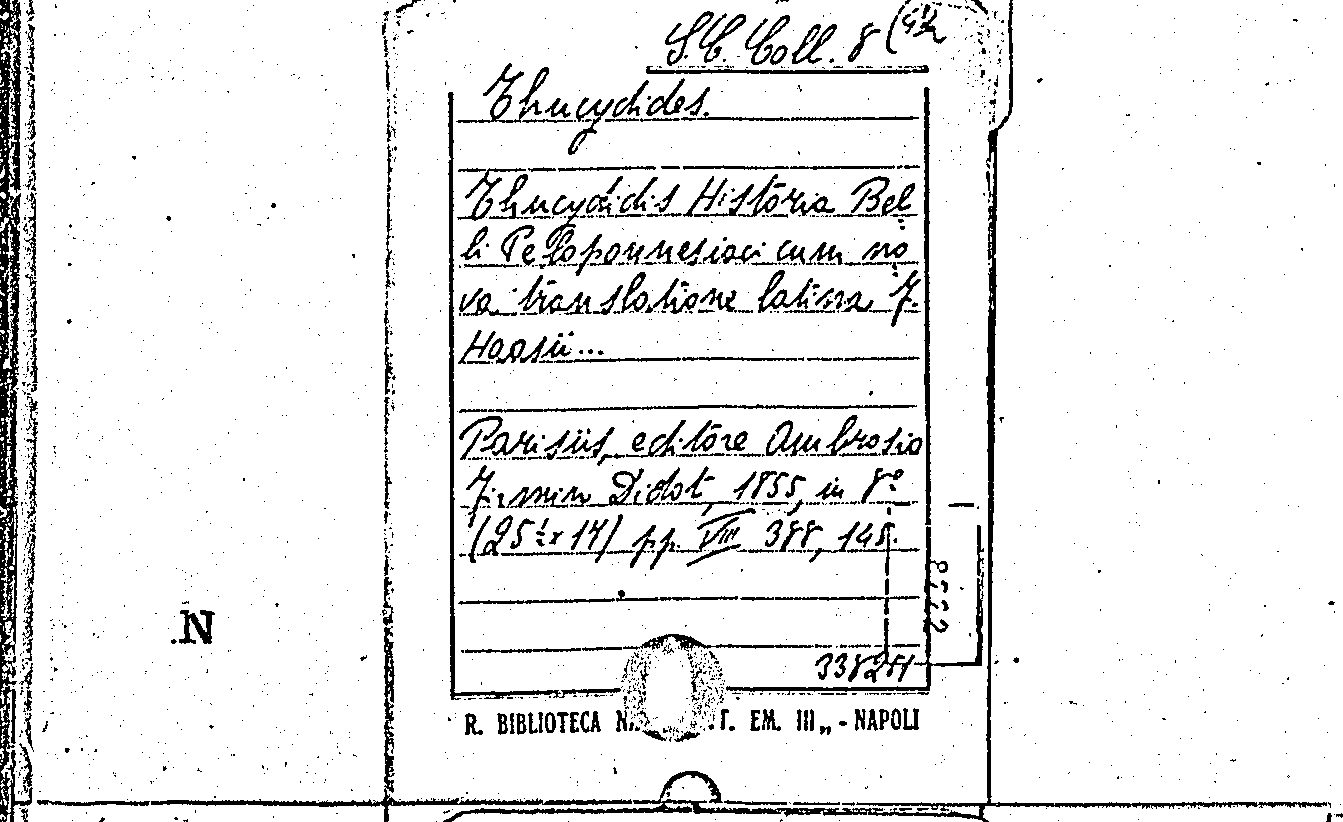 S.C. Coll. 8 (42
Thucydides.
Thucydidis Historia Bel
li Peloponnesiaci cum no
va translatione latina J.
Haasii...
Parisiis, editore Ambrosio
Firmin Didot, 1855, in 8º
(25½x17) pp. VIII 388, 145.
N
R. BIBLIOTECA N. T. EM. III„ - NAPOLI